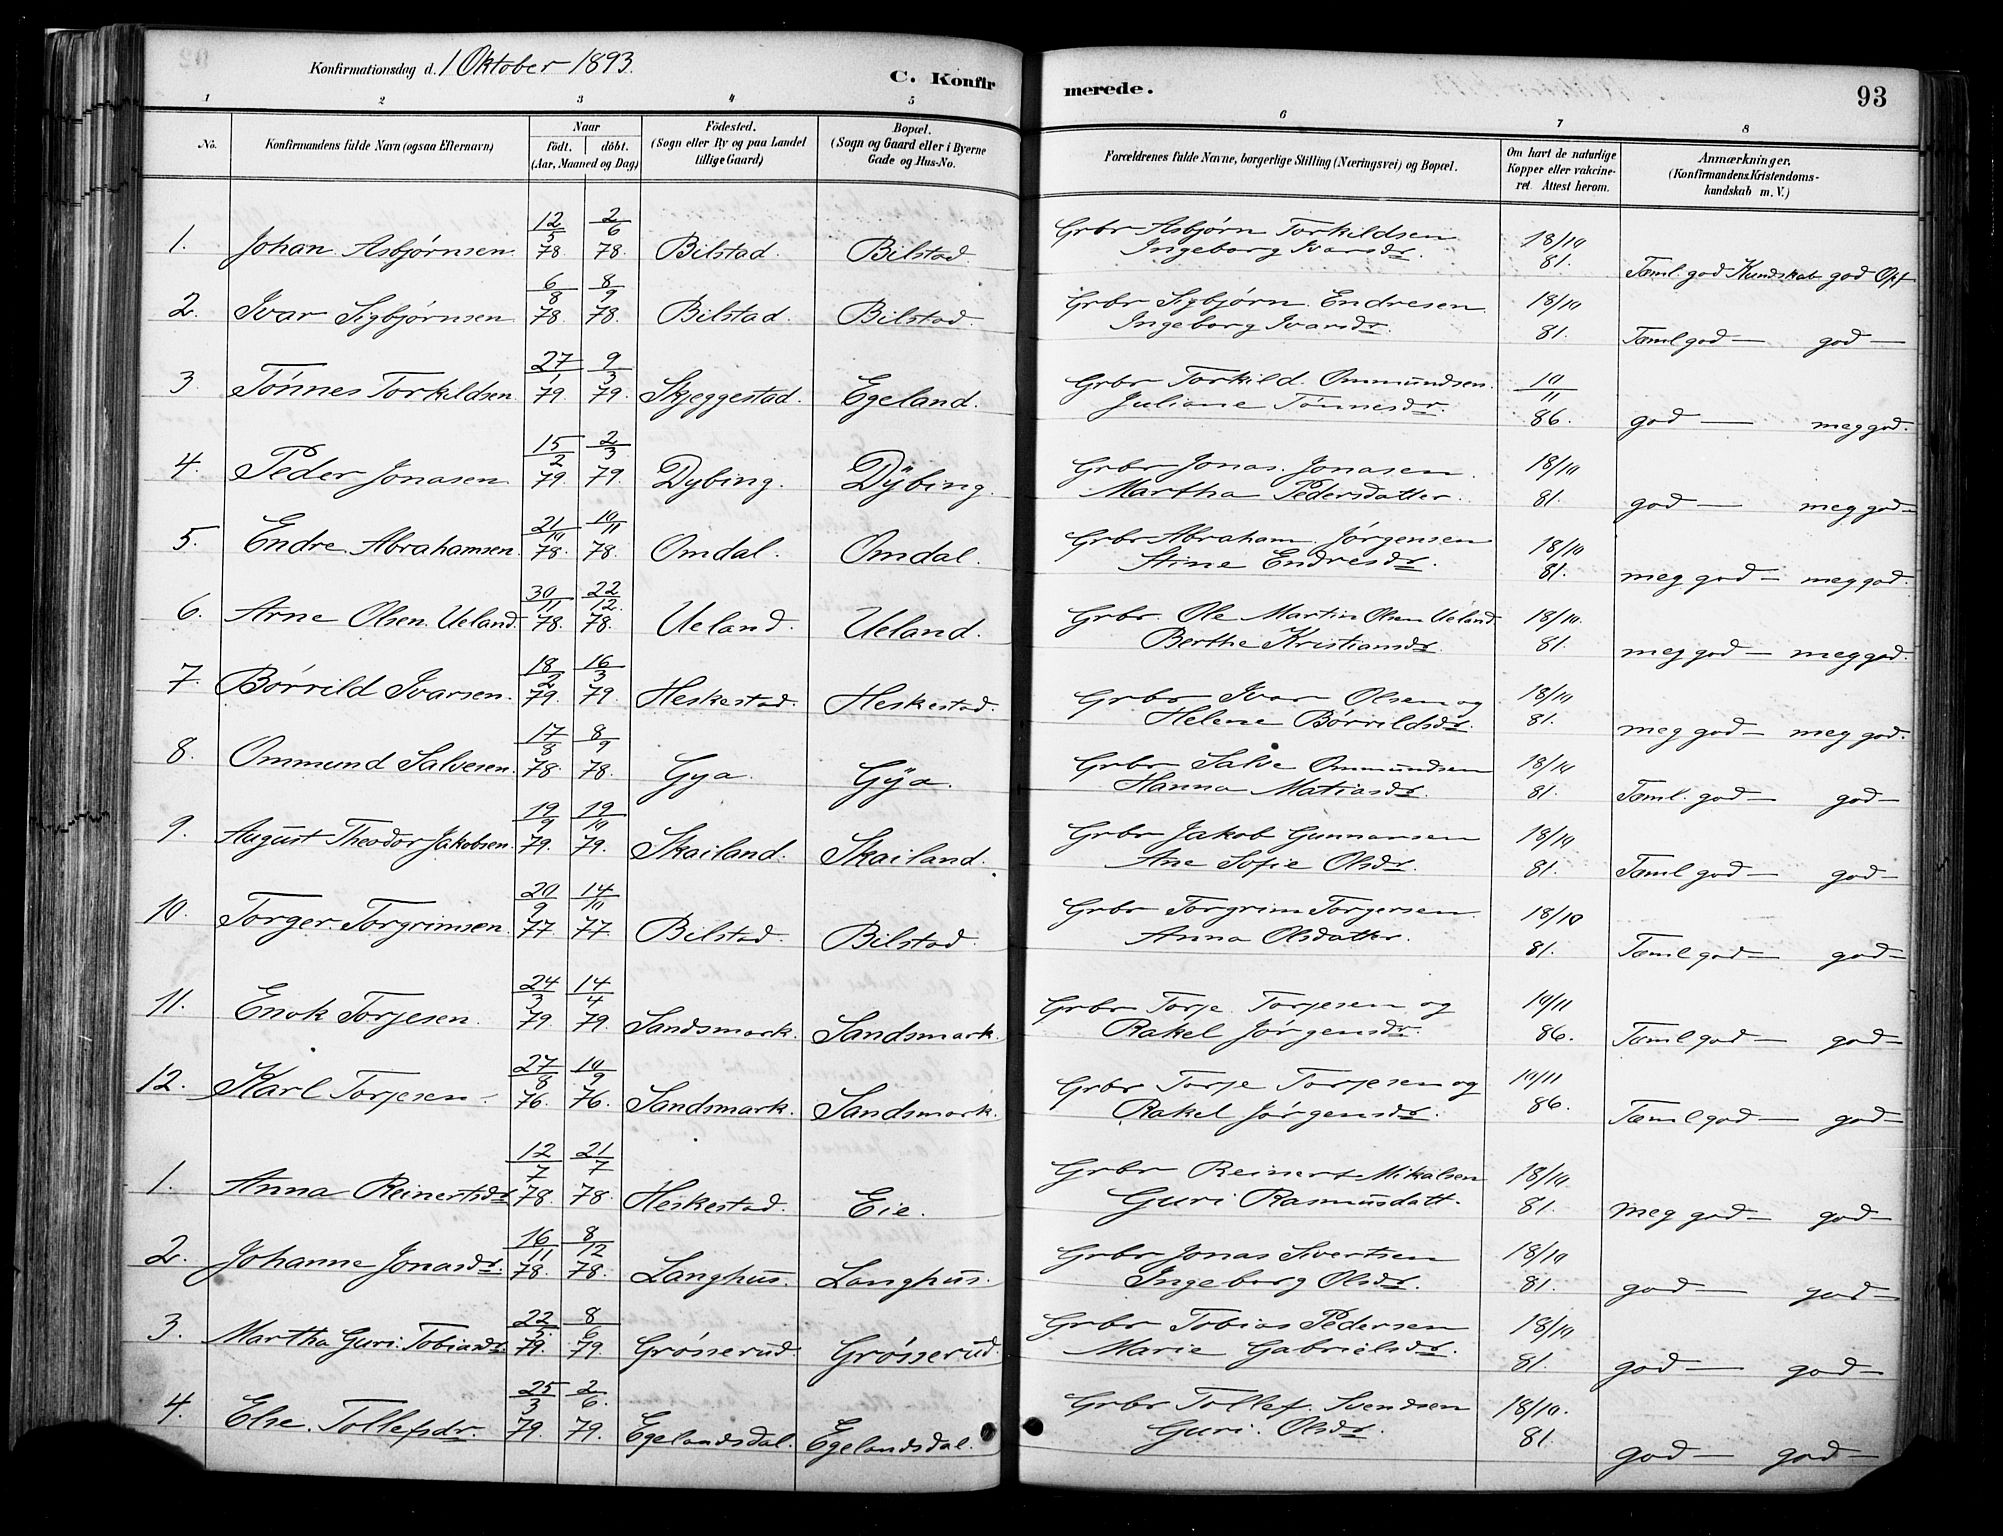 Konfirmationsdag d. 1 Oktober 1893.
C. Konfirmerede.
93
1 2 3 4 5 6 7 8
No.
Konfirmandens fulde Navn (ogsaa Efternavn)
Naar
födt. döbt.
(Aar, Maaned og Dag)
Födested.
(Sogn eller By og paa Landet
tillige Gaard)
Bopæl.
(Sogn og Gaard eller i Byerne
Gade og Hus-No.
Forældrenes fulde Navne, borgerlige Stilling (Næringsvei) og Bopæl.
Om havt de naturlige
Kopper eller vakcine-
ret. Attest herom.
Anmærkninger.
(Konfirmandens Kristendoms-
kundskab m. V.)
1. Johan Asbjørnsen. 12/5 78. 2/6 78. Bilstad. Bilstad. Grbr Asbjørn Torkildsen 18/10
Ingeborg Ivarsdr. 81. Taml god Kundskab god Opf
2. Ivar Sigbjørnsen 6/8 78. 8/9 78. Bilstad. Bilstad. Grbr Sigbjørn Endresen 18/10
Ingeborg Ivarsdr. 81. Taml god — god —
3. Tønnes Torkildsen 27/1 79. 9/3 79. Skjeggestad. Egeland. Grbr Torkild Ommundsen. 10/11
Juliane Tønnesdr. 86. god — meg god.
4. Peder Jonasen 15/2 79. 2/3 79. Dybing. Dÿbing. Grbr Jonas Jonasen 18/10
Martha Pedersdatter. 81. god — meg god —
5. Endre Abrahamsen. 21/10 78. 10/11 78. Omdal. Omdal. Grbr Abraham Jørgensen 18/10
Stine Endresdr. 81. meg god — meg god.
6. Arne Olsen Ueland. 30/11 78. 22/12 78. Ueland. Ueland. Grbr Ole Martin Olsen Ueland 18/10.
Berthe Kristiansdr. 81. meg god — meg god.
7. Børrild Ivarsen. 18/2 79. 16/3 79. Heskestad. Heskestad. Grbr Ivar Olsen og 18/10
Helene Børrildsdr. 81. meg god — meg god.
8. Ommund Salvesen. 17/8 78. 8/9 78. Gya. Gÿa. Grbr Salve Ommundsen 18/10
Hanna Matiasdr. 81. Taml. god — god —
9. August Theodor Jakobsen. 19/9 79. 19/10 79. Skailand. Skailand. Grbr Jakob Gunnarsen 18/10
Ane Sofie Olsdr. 81. Taml god — god —
10. Torger Torgrimsen. 20/9 77. 14/10 77. Bilstad. Bilstad. Grbr Torgrim Torgersen. 18/10
Anna Olsdatter. 81. Taml god — god —
11. Enok Torjesen. 24/3 79. 14/4 79. Sandsmark. Sandsmark. Grbr Torje Torjesen og 10/11
Rakel Jørgensdr. 86. Taml god — god —
12. Karl Torjesen. 27/8 76. 10/9 76. Sandsmark. Sandsmark. Grbr Torje Torjesen og 10/11
Rakel Jørgensdr. 86. Taml god — god —
1. Anna Reinertsdr 12/7 78. 21/7 78. Heskestad. Eie. Grbr Reinert Mikalsen 18/10.
Guri Rasmusdatt. 81. meg god — god —
2. Johanne Jonasdr. 16/11 78. 8/12 78. Langhus. Langhus. Grbr Jonas Sivertsen 18/10
Ingeborg Olsdr. 81. god — god —
3. Martha Guri Tobiasdr. 22/5 79. 8/6 79. Grøsserud. Grøsserud. Grbr Tobias Pedersen 18/10
Marie Gabrielsdr. 81. god — god —
4. Else Tollefsdr. 25/3 79. 2/6 79. Egelandsdal. Egelandsdal. Grbr Tollef Svendsen 18/10.
Guri Olsdr. 81. god — god —